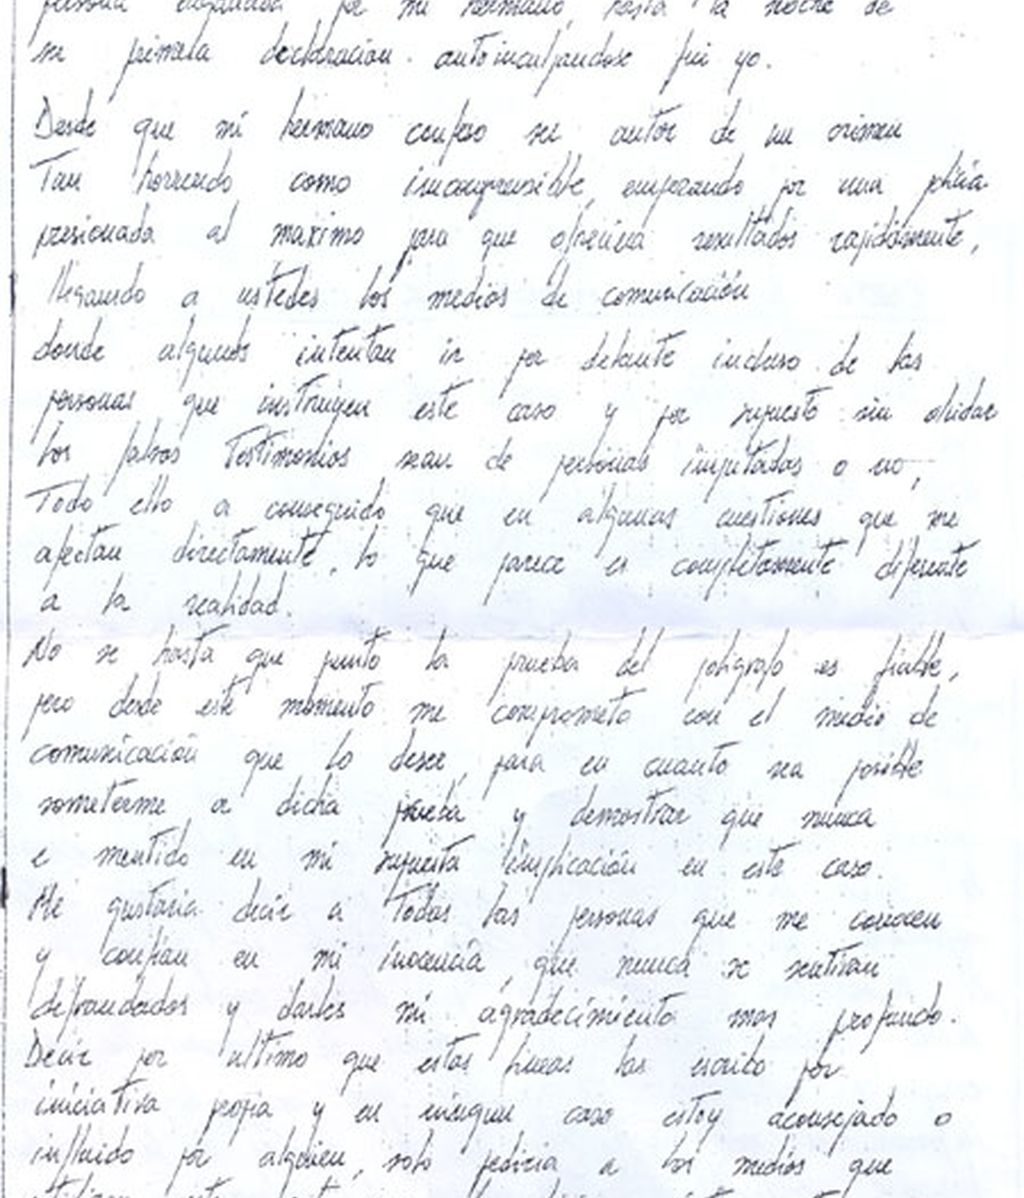 persona engañada por mi hermano, hasta la noche de
su primera declaracion autoinculpandose fui yo.
Desde que mi hermano confeso ser autor de un crimen
Tan horrendo como incomprensible, empezando por una policia
presionada al maximo para que ofreciera resultados rapidamente,
llegando a ustedes los medios de comunicación
donde algunos intentan ir por delante incluso de las
personas que instruyen este caso y por supuesto sin olvidar
los falsos Testimonios sean de personas imputadas o no,
Todo ello a conseguido que en algunas cuestiones que me
afectan directamente, lo que parece es completamente diferente
a la realidad.
No se hasta que punto la prueba del poligrafo es fiable,
pero desde este momento me comprometo con el medio de
comunicación que lo desee, para en cuanto sea posible
someterme a dicha prueba y demostrar que nunca
e mentido en mi supuesta implicación en este caso.
Me gustaria decir a Todas las personas que me conocen
y confian en mi inocencia, que nunca se sentiran
defraudados y darles mi agradecimiento mas profundo.
Decir por ultimo que estas lineas las escribo por
iniciativa propia y en ningun caso estoy aconsejado o
influido por alguien, solo pediria a los medios que